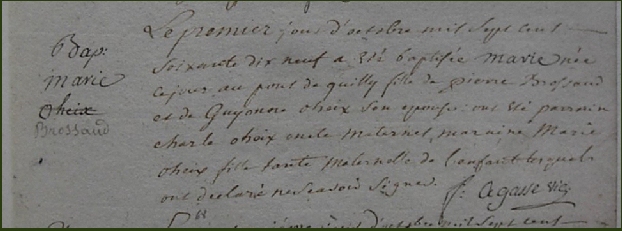 Bap:
marie
oheix
Brossaud
Le premier jour d'octobre mil sept cent
soixante dix neuf a été baptisée marie née
ce jour au pont de quilly fille de pierre Brossaud
et de Guyonne oheix son epouse: ont été parrain
charle oheix oncle maternel, maraine Marie
oheix fille tante Maternelle de l'enfant lesquels
ont declaré ne scavoir signer.